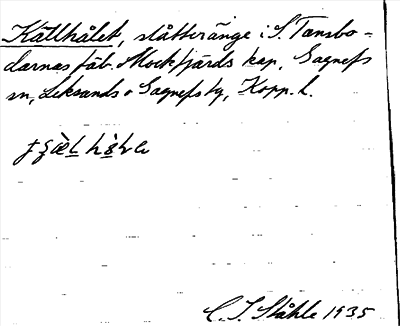 Källhålet, slåtteränge i S. Tansbo-
darnas fäb. Mockfjärds kap, Gagnefs
sn, Leksands o Gagnefs tg, Kopp. l.
C. I. Ståhle 1935